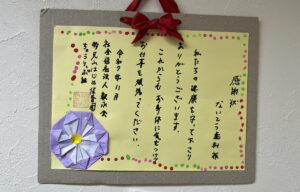 感謝状
ないとう歯科様
私たちの健康を守って下さり
ありがとうございます。
これからもお身体に気をつけて
お仕事を頑張ってください。
令和7年11月
社会福祉法人
保育園